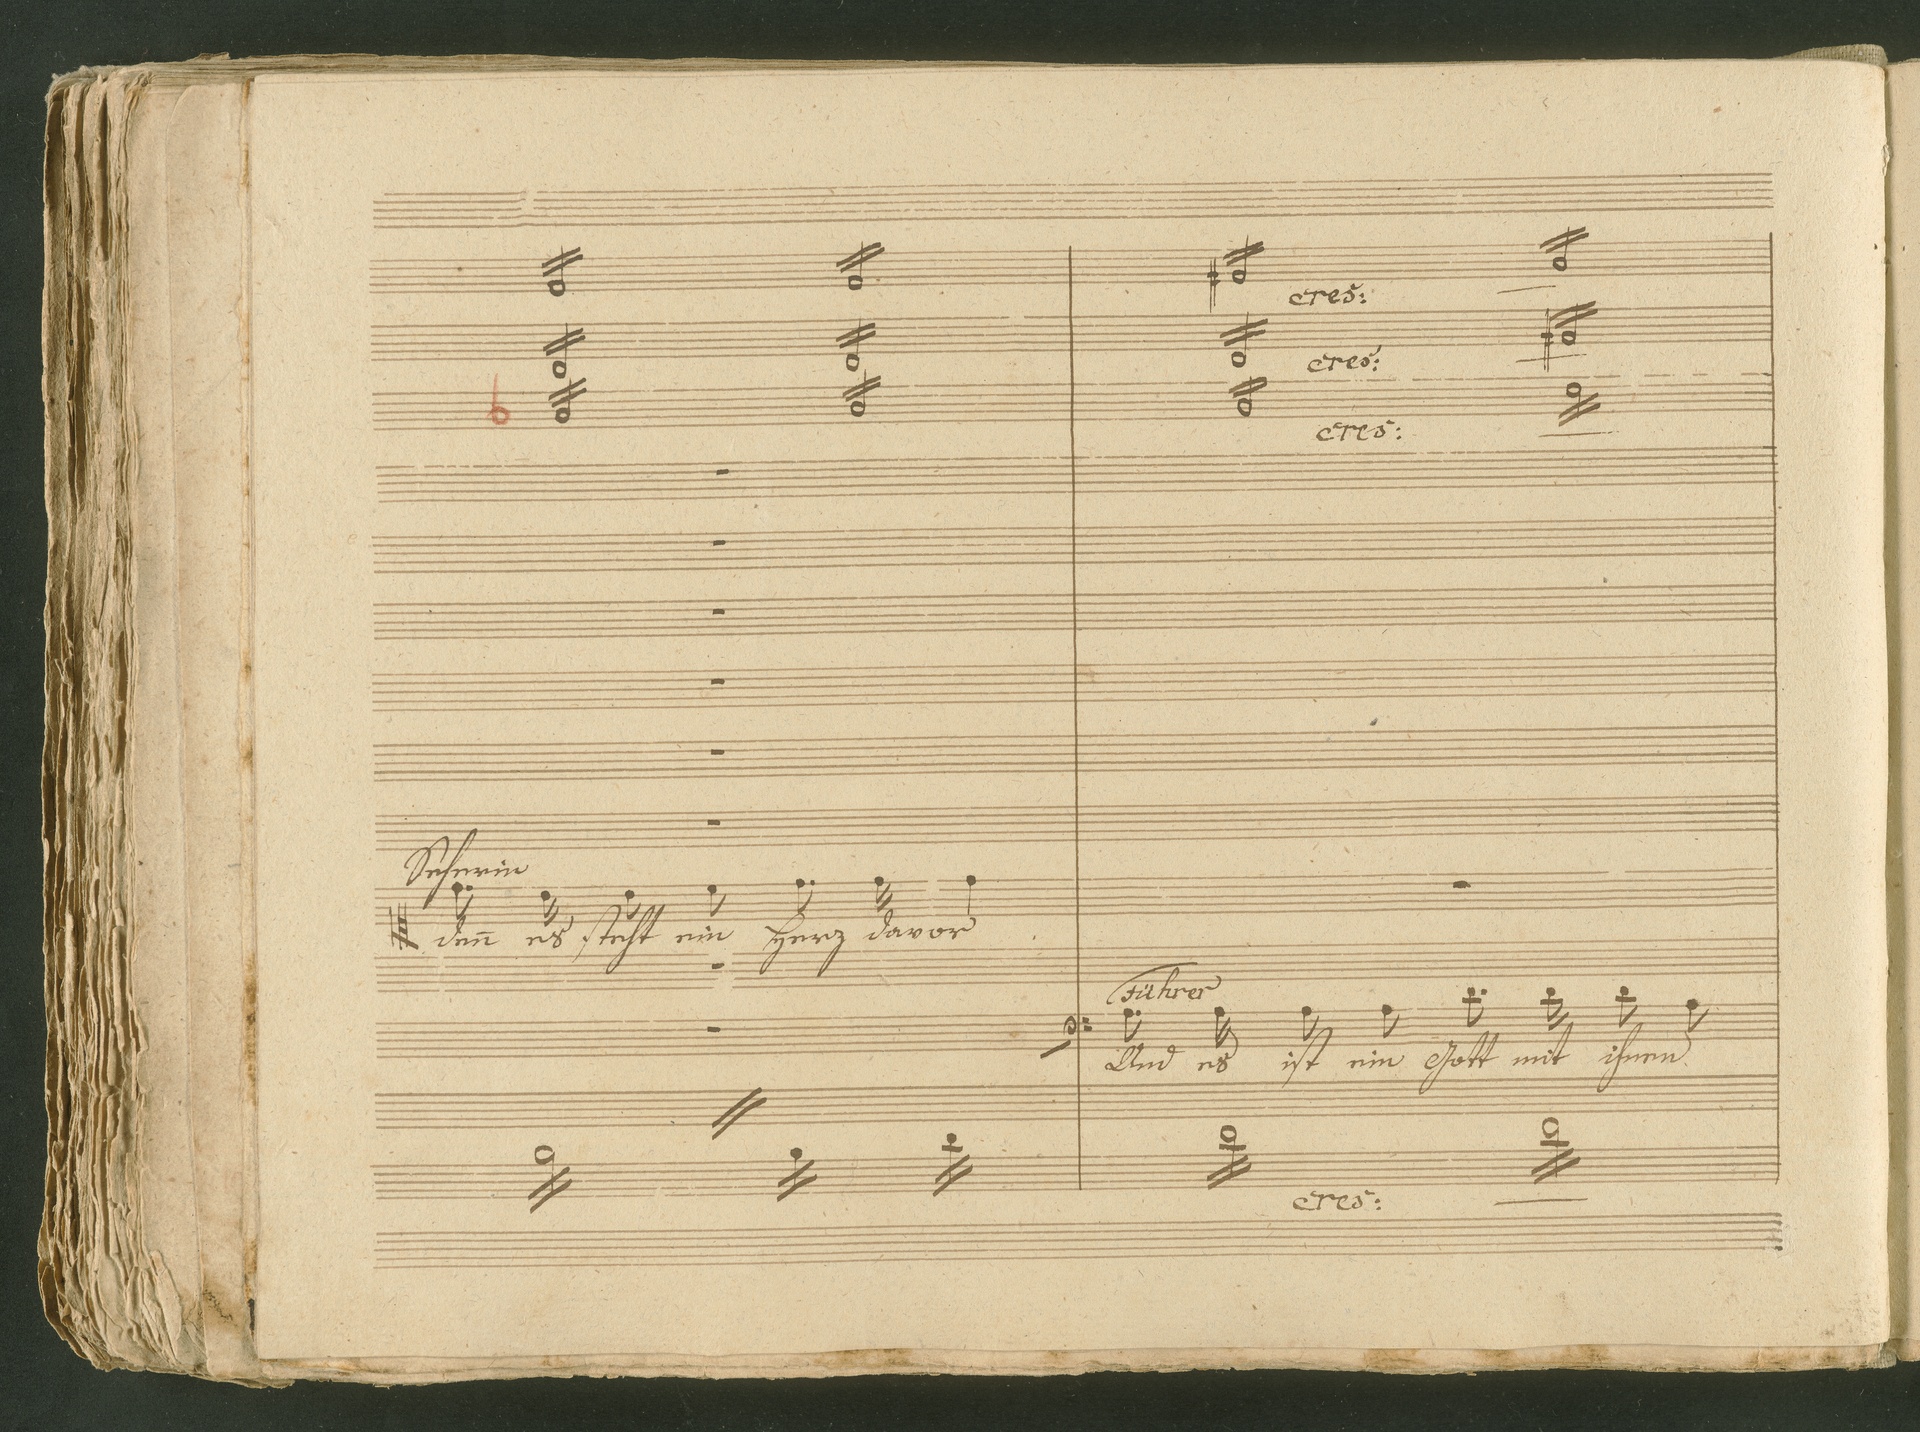 cres:
cres:
6
cres:
Seherin
deñ es steht ein Herz davor
Führer
Und es ist ein Gott mit ihnen
cres: